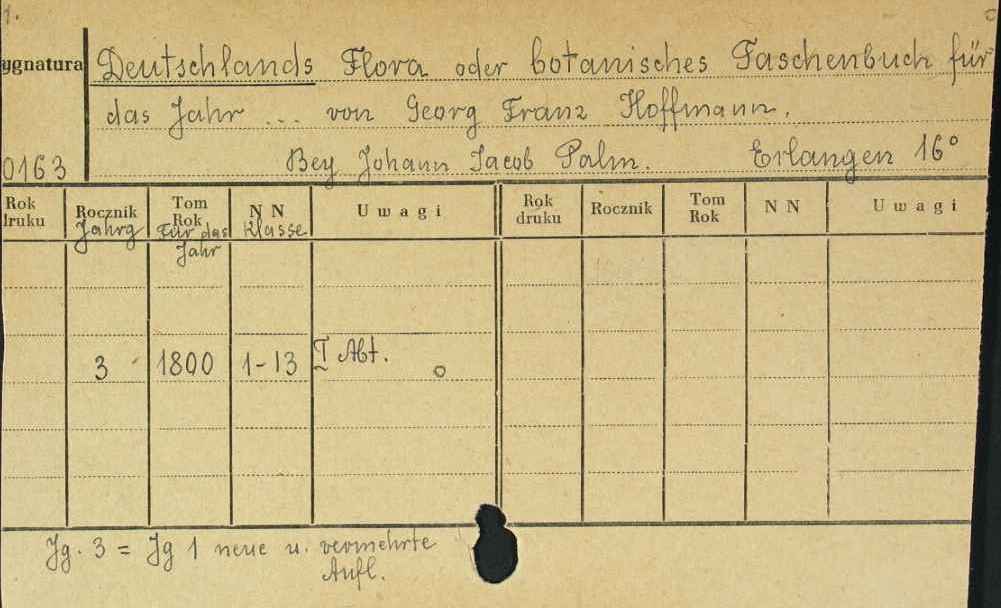 1.
ygnatura Deutschlands Flora oder botanisches Taschenbuch für
das Jahr ... von Georg Franz Hoffmann.
0163 Bey Johann Jacob Palm. Erlangen 16°
Rok druku Rocznik Tom Rok N N U w a g i Rok druku Rocznik Tom Rok N N U w a g i
Jahrg Für das Jahr Klasse
3 1800 1-13 I Abt.
Jg. 3 = Jg 1 neue u. vermehrte
Aufl.